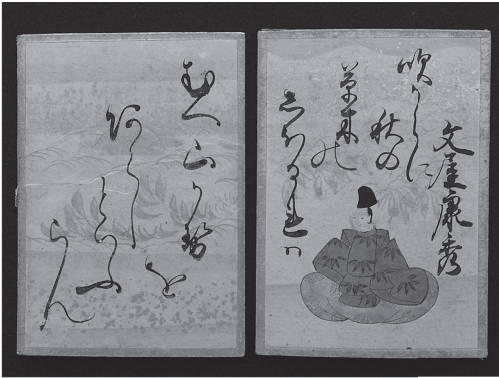 文屋康秀
吹からに
秋の
草木の
しほるれハ
むへ山か勢
を
阿らし
といふ
らん